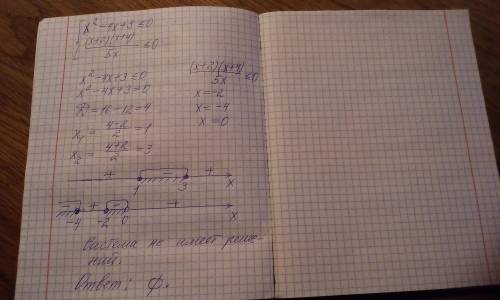 x² - 4x + 3 ≤ 0
(x+2)(x+4)/5x ≤ 0
x² - 4x + 3 ≤ 0
x² - 4x + 3 = 0
D = 16 - 12 = 4
x₁ = (4-2)/2 = 1
x₂ = (4+2)/2 = 3
(x+2)(x+4)/5x ≤ 0
x = -2
x = -4
x = 0
+ - +
1 3 x
- + - +
-4 -2 0 x
Система не имеет реше-
ний.
Ответ: ∅.